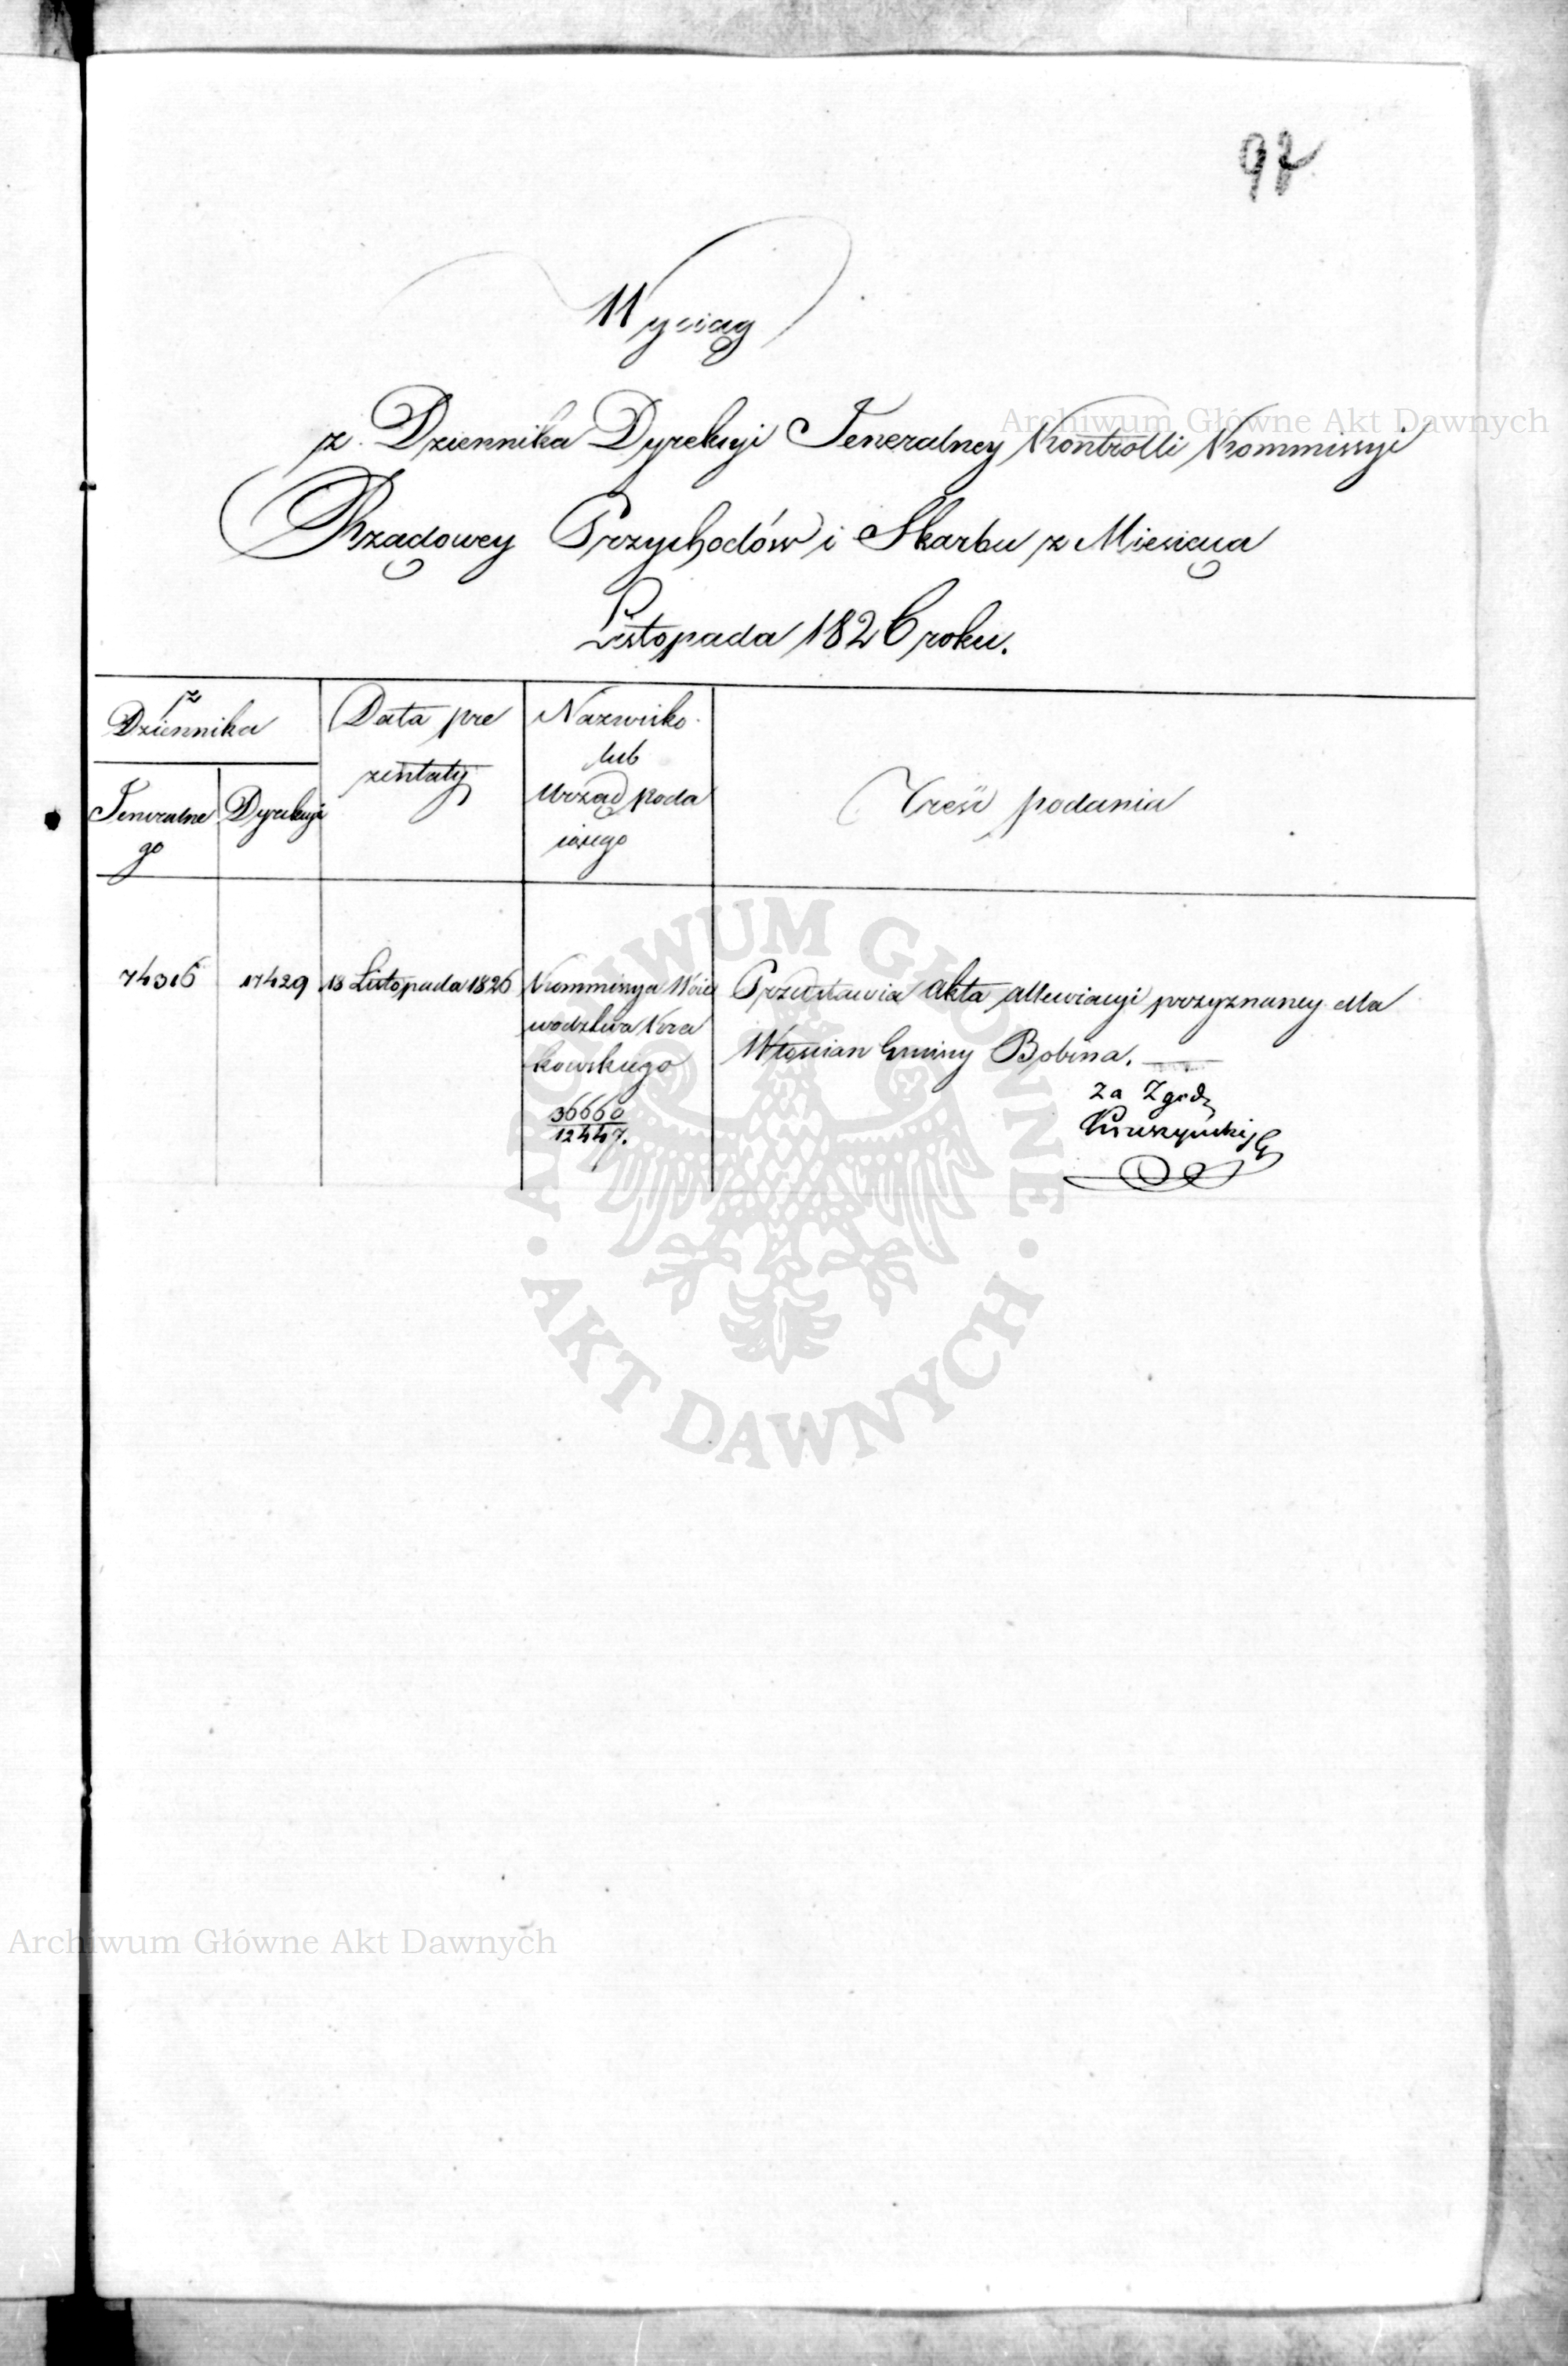 97
Wyciąg
z Dziennika Dyrekcyi Jeneralney Kontrolli Kommissyi
Rządowey Przychodów i Skarbu z Miesiąca
Listopada 1826 roku.
z
Dziennika
Jeneralne
go
Dyrekcyi
Data pre
zentaty
Nazwisko
lub
Urząd poda
iącego
Treść podania
74316
17429
18 Listopada 1826
Kommissya Woie
wodztwa Kra
kowskiego
36660
12447.
Przedstawia akta allewiacyi przyznaney dla
Włościan Gminy Bobina.
Za Zgod
Archiwum Główne Akt Dawnych
ARCHIWUM GŁÓWNE
AKT DAWNYCH
Archiwum Główne Akt Dawnych